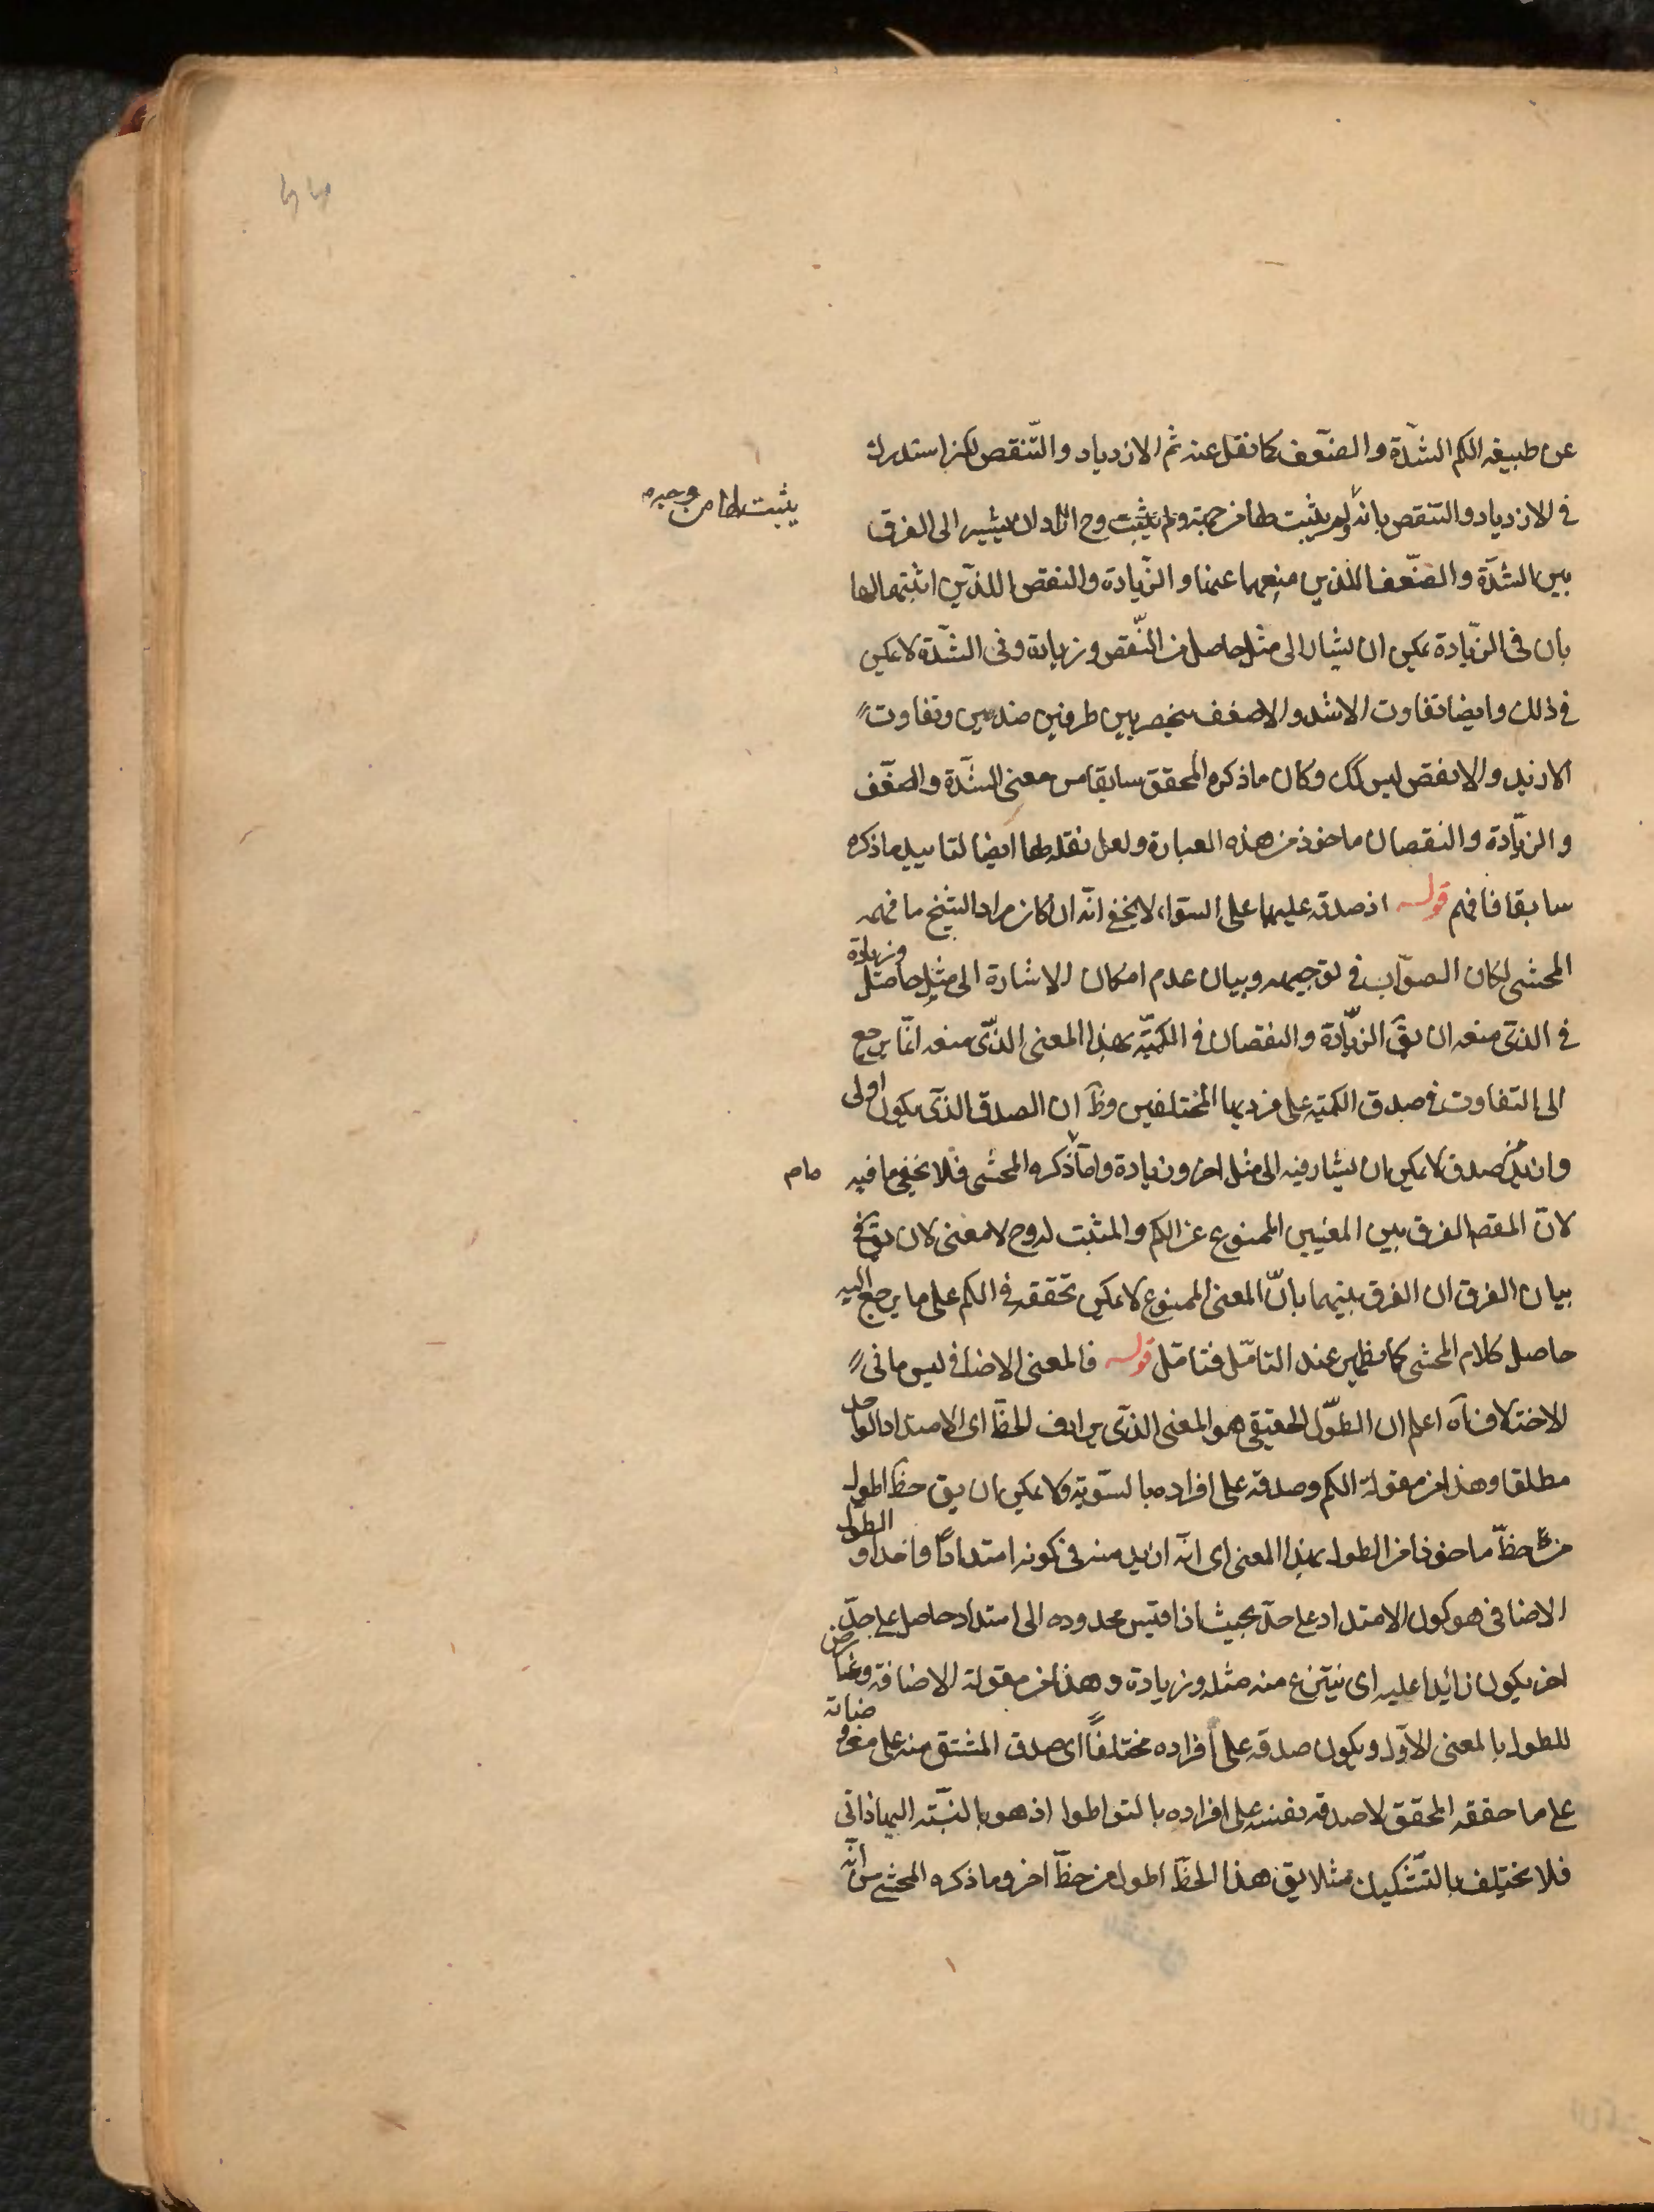 عن طبيعه الكم الشدّة والضعف كما نقل عنه ثم الازدياد والتّنقص لكن استدرك
فى الازدياد والتنقص بانه لم يثبت لها من جهة ولم يثبت وح اراد ان يشير الى الفرق
يثبت لها من وجه م
بين الشدّة والضّعف اللذين منعهما عنها والزّيادة والنقص اللذين اثبتهما لها
بان فى الزّيادة يمكن ان يشار الى مثل حاصل من النّقص وزيادة وفى الشدّة لا يمكن
فى ذلك وايضا تفاوت الاشد والاضعف ينحصر بين طرفين ضدين وتفاوت
الازيد والانقص ليس كك وكان ما ذكره المحقق سابقا من معنى الشدّة والضعف
والزيّادة والنقصان ماخوذ من هذه العبارة ولعل نقلها ايضا لتاييد ما ذكره
سابقا فافهم قوله اذ صدقه عليهما على السّواء لا يخفى انّه ان كان مراد الشيخ ما فهمه
المحشى لكان الصوّاب فى توجيهه وبيان عدم امكان الاشارة الى مثل حاصل وزيادة
فى الذى منعه ان يق الزيّادة والنقصان فى الكميّة بهذا المعنى الذّى منعه انّما يرجع
الى التفاوت فى صدق الكميّه على فرديها المختلفين وظ ان الصدق الذى يكون اولى
وازيد من صدق لا يمكن ان يشار فيه الى مثل اخر وزيادة وامّا ذكره المحشى فلا يخفى ما فيه
ما م
لانّ المقصد الفرق بين المعنيين الممنوع عن الكم والمثبت له وح لا معنى لان يق فى
بيان الفرق ان الفرق بينهما بانّ المعنى الممنوع لا يمكن تحققه فى الكم على ما يرجع اليه
حاصل كلام المحشى كما يظهر عند التامّل فتامّل قوله فالمعنى الاضافى ليس ما فى
الاختلاف آه اعلم ان الطوّل الحقيقى هو المعنى الذّى يرادف الخطّ اى الامتداد الواحد
مطلقا وهذا من مقولة الكم وصدقه على افراده بالسّوية ولا يمكن ان يق خطّ اطول
من خطّ ماخوذا من الطول بهذا المعنى اى انّه ازيد منه فى كونه امتدادًا واحدا والطول
الاضافى هو كون الامتداد على حدّ بحيث اذا قيس محدوده الى امتداد حاصل على حدّ
اخر يكون زائيدا عليه اى ينتزع منه مثله وزيادة وهذا من مقولة الاضافة وعارض
للطول بالمعنى الاوّل ويكون صدقه على افراده مختلفًا اى صدق المشتق منه على معروضاته
على ما حققه المحقق لا صدقه نفسه على افراده بالتواطوا اذ هو بالنسبّة اليها ذاتى
فلا يختلف بالتشّكيك مثلا يق هذا الخطّ اطول من خطّ اخر وما ذكره المحشى من انّه